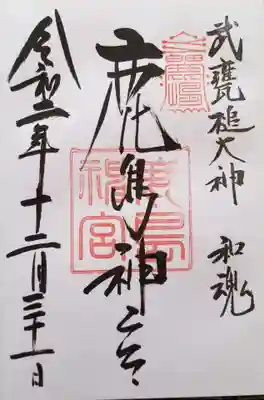 武甕槌大神 和魂
鹿島神宮
鹿島神宮
令和二年十二月三十一日